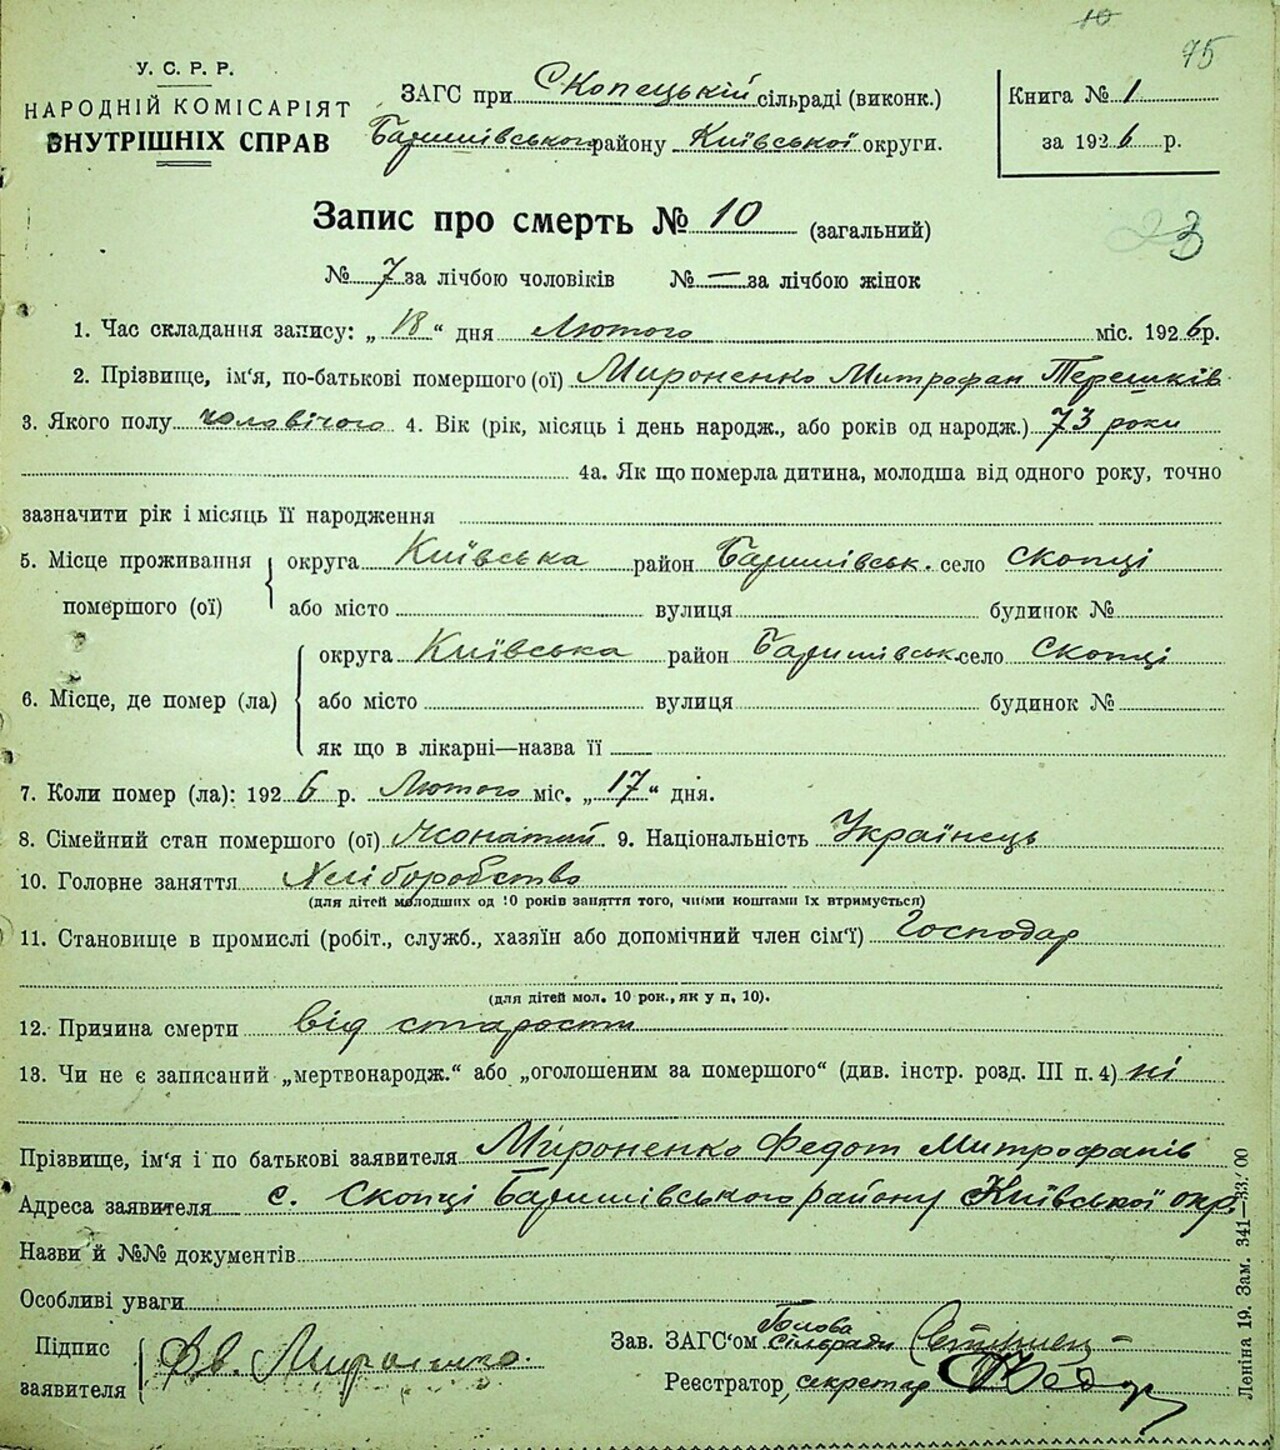 10
75
У. С. Р. Р.
НАРОДНІЙ КОМІСАРІЯТ
ВНУТРІШНІХ СПРАВ
ЗАГС при Скопецькій сільраді (виконк.)
Баришівського району Київської округи.
Книга № 1
за 1926 р.
Запис про смерть № 10 (загальний)
23
№ 7 за лічбою чоловіків № — за лічбою жінок
1. Час складання запису: „18“ дня Лютого міс. 1926 р.
2. Прізвище, ім'я, по-батькові помершого (ої) Мироненко Митрофан Терешків
3. Якого полу чоловічого 4. Вік (рік, місяць і день народж., або років од народж.) 73 роки
4а. Як що померла дитина, молодша від одного року, точно
зазначити рік і місяць її народження
5. Місце проживання помершого (ої) округа Київська район Баришівськ. село Скопці
або місто вулиця будинок №
6. Місце, де помер (ла) округа Київська район Баришівськ. село Скопці
або місто вулиця будинок №
як що в лікарні—назва її
7. Коли помер (ла): 1926 р. Лютого міс. „17“ дня.
8. Сімейний стан помершого (ої) Жонатий 9. Національність Українець
10. Головне заняття Хліборобство
(для дітей молодших од 10 років заняття того, чиїми коштами їх втримується)
11. Становище в промислі (робіт., служб., хазяїн або допомічний член сім'ї) Господар
(для дітей мол. 10 рок., як у п. 10).
12. Причина смерти від старости
13. Чи не є записаний „мертвонародж.“ або „оголошеним за помершого“ (див. інстр. розд. III п. 4) ні
Прізвище, ім'я і по батькові заявителя Мироненко Федот Митрофанів
Адреса заявителя с. Скопці Баришівського району Київської окр.
Назви й №№ документів
Особливі уваги
Підпис заявителя Мироненко.
Зав. ЗАГС'ом Голова сільради
Реєстратор, секретар
Леніна 19. Зам. 341—33.